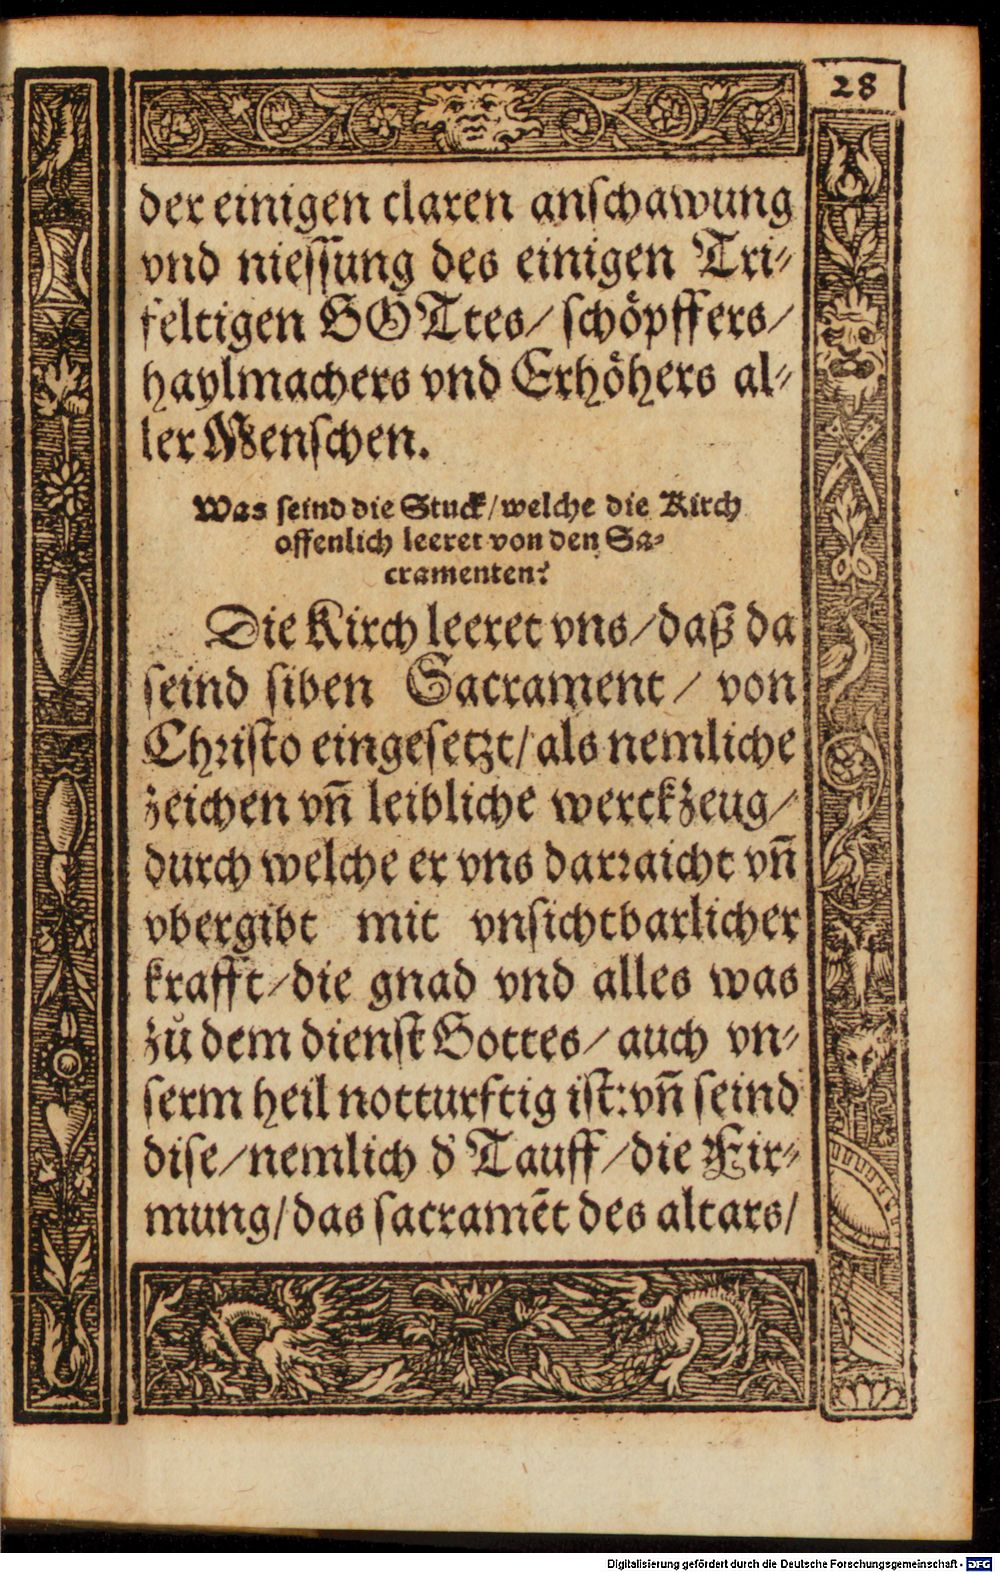 28
der einigen claren anschawung
vnd niessung des einigen Tri-
feltigen GOTtes/ schöpffers/
haylmachers vnd Erhöhers al-
ler Menschen.
Was seind die Stuck/welche die Kirch
offenlich leeret von den Sa-
cramenten?
Die Kirch leeret vns/daß da
seind siben Sacrament / von
Christo eingesetzt/ als nemliche
zeichen vñ leibliche werckzeug/
durch welche er vns darraicht vñ
vbergibt mit vnsichtbarlicher
krafft/die gnad vnd alles was
zů dem dienst Gottes/ auch vn-
serm heil notturftig ist:vñ seind
dise/nemlich d' Tauff/die Fir-
mung/das sacramēt des altars/
Digitalisierung gefördert durch die Deutsche Forschungsgemeinschaft - DFG